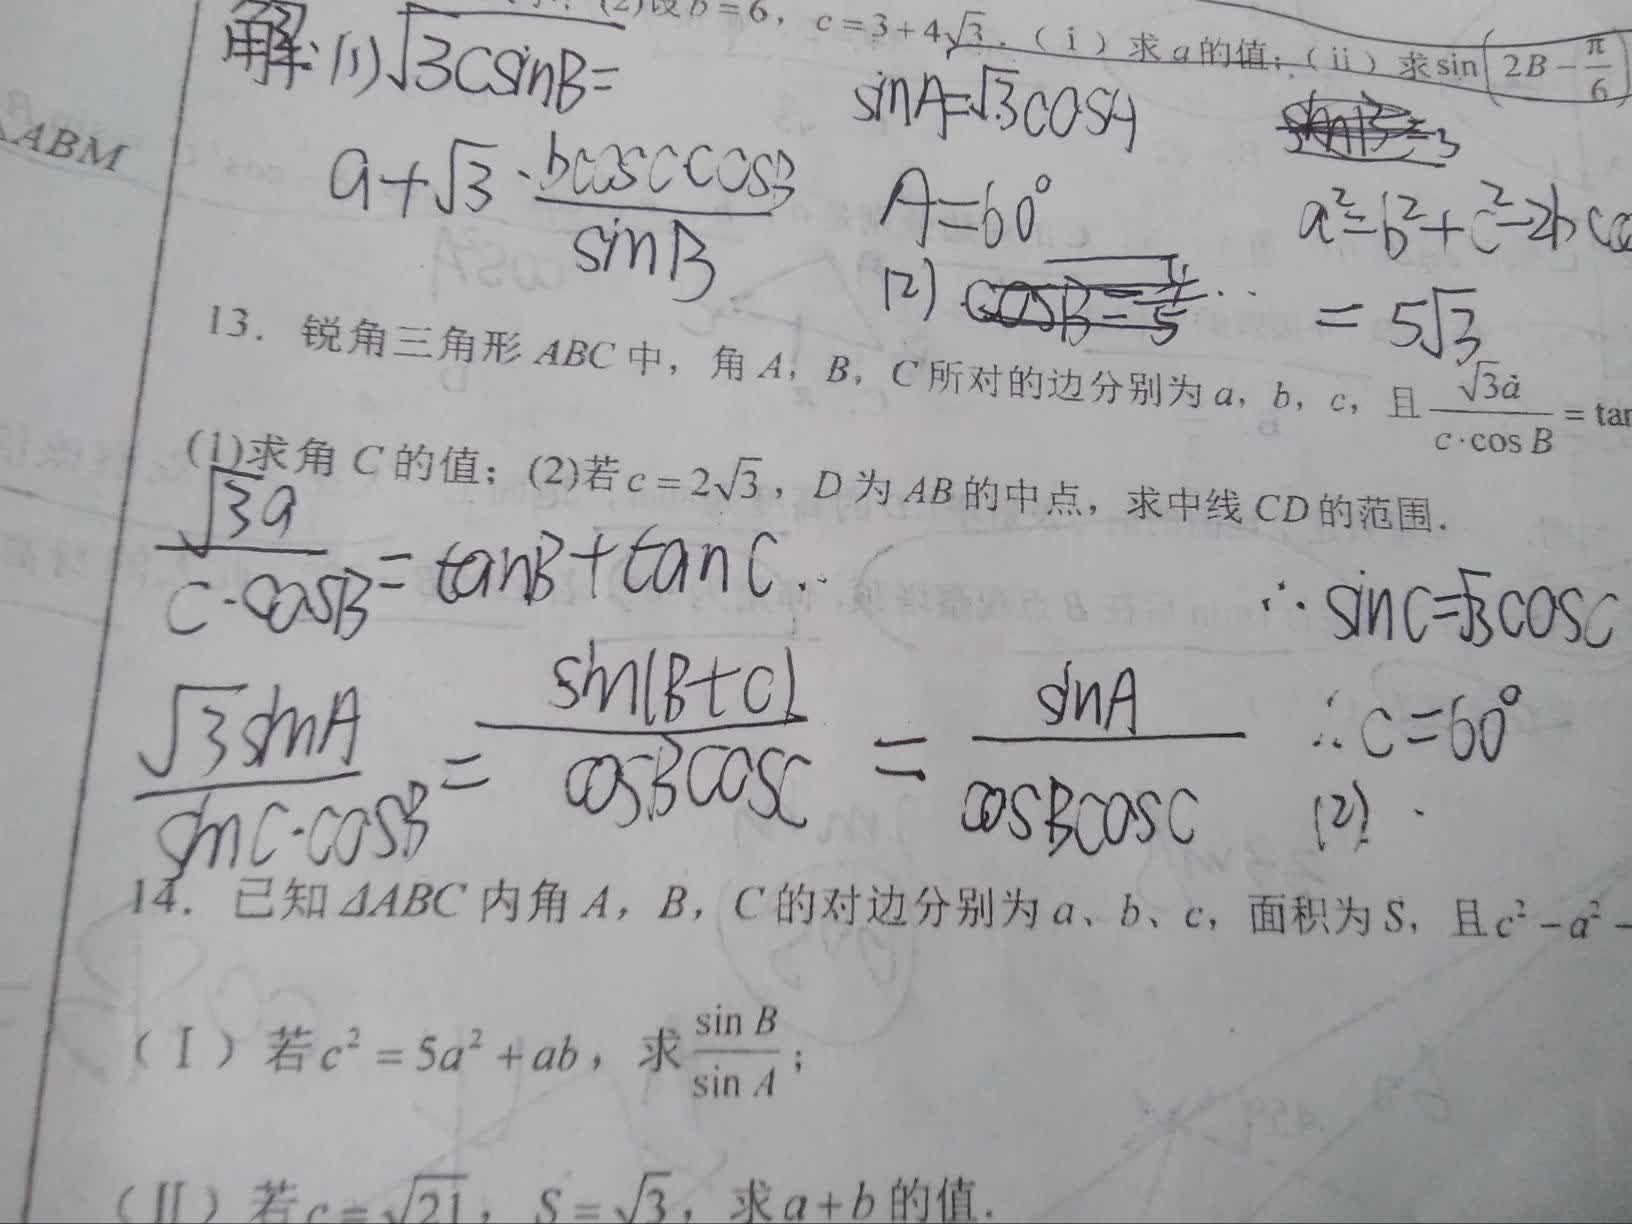 (2)设b=6，c=3+4√3．（i）求a的值；（ii）求sin(2B−π/6)
解：(1)√3csinB=
a+√3·bcosCcosB/sinB
sinA=√3cosA
A=60°
(2)
a²=b²+c²-2bco
=5√3
△ABM
13．锐角三角形ABC中，角A，B，C所对的边分别为a，b，c，且√3a/c·cosB=tan
(1)求角C的值；(2)若c=2√3，D为AB的中点，求中线CD的范围．
√3a/c·cosB=tanB+tanC.
√3sinA/sinC·cosB=sin(B+C)/cosBcosC=sinA/cosBcosC
∴sinC=√3cosC
∴C=60°
(2)
14．已知ΔABC内角A，B，C的对边分别为a、b、c，面积为S，且c²−a²−
（Ⅰ）若c²=5a²+ab，求sinB/sinA；
（Ⅱ）若c=√21，S=√3，求a+b的值．